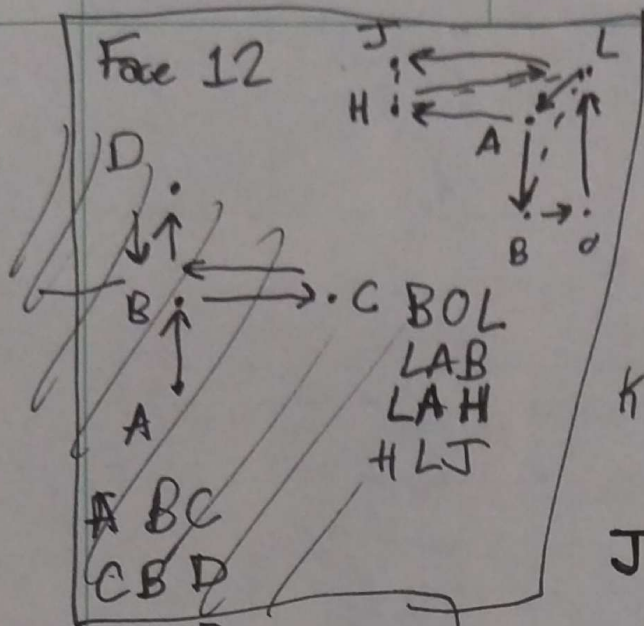 Face 12
J
L
H
A
B
d
D
B
C
A
BOL
LAB
LAH
HLJ
A BC
CBD
K
J